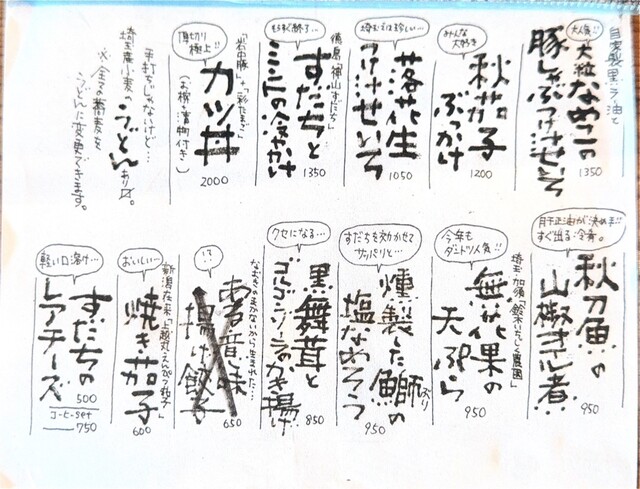 自家製黒ラー油と
大人気!!
大粒なめこの
豚しゃぶつけ汁せいろ
1350
みんな大好き
秋茄子
ぶっかけ
1200
埼玉では珍しい…
落花生
つけ汁せいろ
1050
徳島 神山すだち
もうすぐ終了…
すだちと
ミントの冷やかけ
1350
「岩中豚」と「彩たまご」
厚切り極上!!
カツ丼
(お椀・漬物付き)
2000
手打ちじゃないけど…
埼玉産小麦の
うどん
あり〼。
※全ての蕎麦を
うどんに変更できます。
肝正油が決め手!!
すぐ出る冷菜。
秋刀魚の
山椒オイル煮
950
埼玉 加須「鈴木いちじく農園」
今年も
ダントツ人気!!
無花果の
天ぷら
950
すだちを効かせて
サッパリと…
燻製した鰤の
ぶり
塩なめろう
950
クセになる…
黒舞茸と
ゴルゴンゾーラのかき揚げ
850
なおきのまかないから生まれた…
ある昔し味
揚げ餃子
650
新潟在来「上越丸えんぴつ茄子」
おいしい…
焼き茄子
600
軽い口溶け…
すだちの
レアチーズ
500
コーヒーset
750